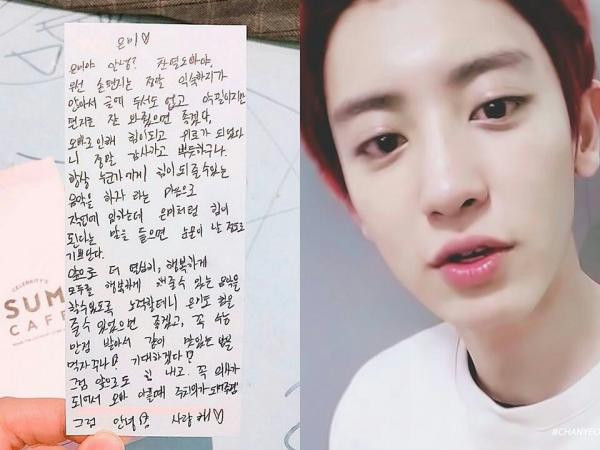 은비♡
은비야 안녕? 찬열오빠야,
우선 손편지는 정말 익숙하지가
않아서 글에 두서도 없고 악필이지만
편지를 잘 봐줬으면 좋겠다,
오빠로 인해 힘이되고 위로가 되었다
니 정말 감사하고 뿌듯하구나.
항상 누군가에게 힘이 되로 수있는
음악을 하자 라는 마음으로
작업에 임하는데 은비처럼 힘이
된다는 말을 들으면 눈물이 난 정도로
기쁘단다.
앞으로 더 열심히, 행복하게
모두를 행복하게 해줄수 있는 음악을
할수있도록 노력할테니 은비도 힘을
줄수 있었으면 좋겠고, 꼭 수능
만점 받아서 같이 맛있는 밥을
먹자꾸나! 기대하겠다!
그럼 앞으로도 힌 내고. 꼭 의사가
되어서 오빠 아플때 주치의가
그럼 안녕! 사랑해♡
CELEBRITY'S
SUM
CAFE
#CHANYEO